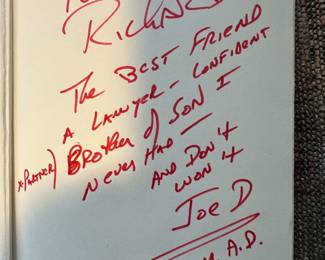 RICHARD
THE BEST FRIEND
A LAWYER - CONFIDENT
X-PARTNER) BROTHER of SON I
NEVER HAD —
AND DON'T
WON'T
JOE D
A.D.